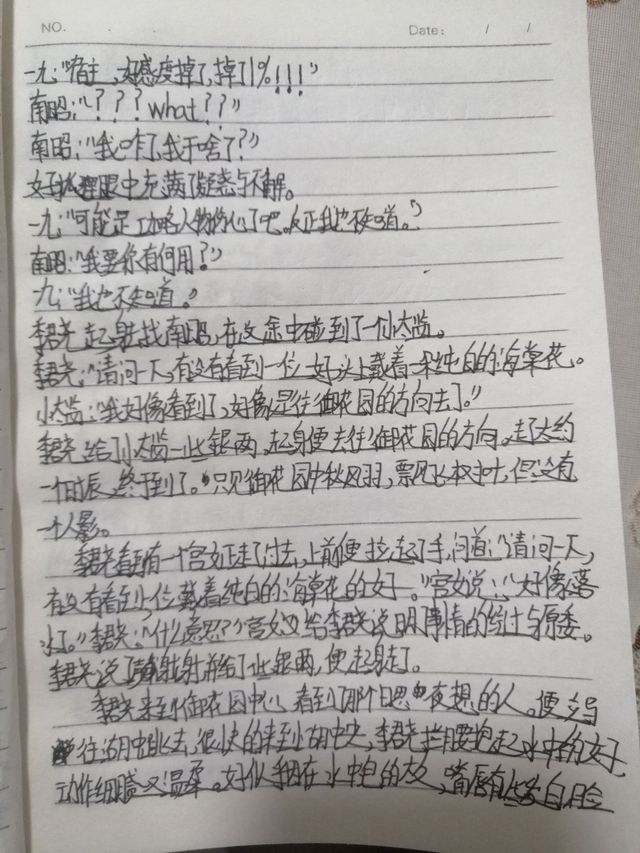 NO.
Date: / /
一九:“宿主,好感度掉了,掉了1%!!!”
南昭:“???what??”
南昭:“我咋了,我干啥了?”
好狐狸眼中充满了疑惑与不解。
一九:“可能是攻略人物的心了吧。反正我也不知道。”
南昭:“我要你有何用?”
一九:“我也不知道。”
李君尧起身找南昭,在这途中碰到了一小太监。
李君尧:“请问一下,有没有看到一位女子头上戴着一朵纯白的海棠花。
小太监:“我好像看到了,好像是往御花园的方向去了。”
李君尧给了小太监一些银两,起身便去往御花园的方向。走了大约
一个时辰,终于到了。只见御花园中秋风羽,飘见长树叶,但没有
一个人影。
李君尧看到有一个宫女正走了过去,上前便拉起了手,问道:“请问一下,
有没有看到一位戴着纯白的海棠花的女子。”宫女说:“好像落
水了。”李君尧:“什么意思?”宫女又给李君尧说明事情的经过与原委。
李君尧说了声谢谢并给了些银两,便起身走了。
李君尧来到御花园中心,看到了那个日思夜想的人。便立马
往湖中跳去,很快的来到湖中央,李君尧拦腰抱起水中的女子,
动作细腻又温柔。好似躺在水中的女子,嘴唇有些发白,脸